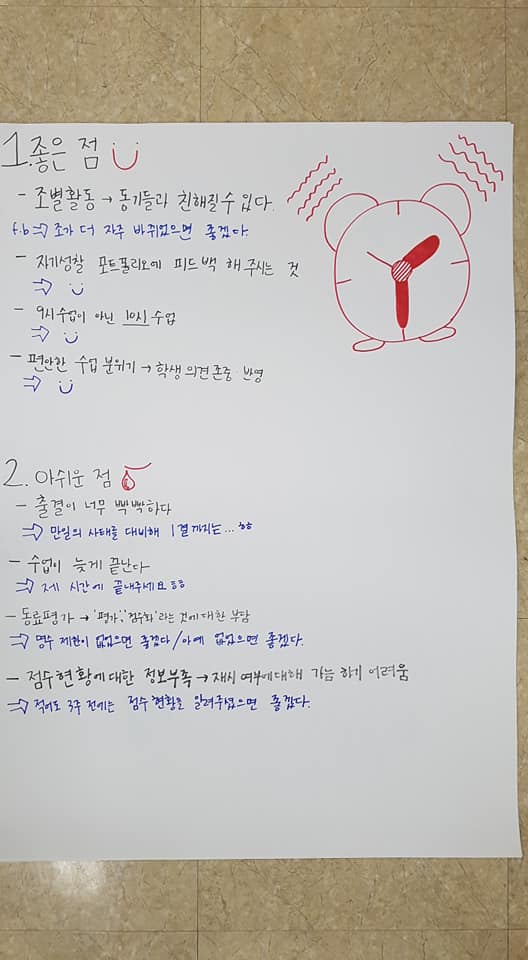 1. 좋은 점
- 조별활동 → 동기들과 친해질수 있다.
f.b ⇒ 조가 더 자주 바뀌었으면 좋겠다.
- 자기성찰 포트폴리오에 피드백 해 주시는 것
⇒
- 9시수업이 아닌 10시 수업
⇒
- 편안한 수업 분위기 → 학생 의견존중 반영
⇒
2. 아쉬운 점
- 출결이 너무 빡빡하다
⇒ 만일의 사태를 대비해 1결 까지는...
- 수업이 늦게 끝난다
⇒ 제 시간에 끝내주세요 ㅎㅎ
- 동료평가 → '평가', '점수화' 라는 것에 대한 부담
⇒ 명수 제한이 없었으면 좋겠다 / 아예 없었으면 좋겠다.
- 점수현황에 대한 정보부족 → 재시 여부에 대해 가늠 하기 어려움
⇒ 적어도 3주 전에는 점수 현황을 알려주셨으면 좋겠다.